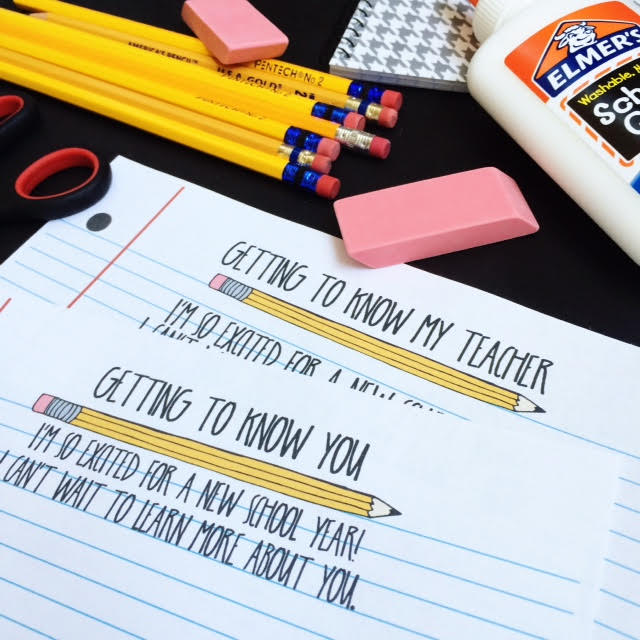 AMERICA'S PENCIL
PENTECH No 2
GOLD
ELMER'S
Washable, N
Scho
GETTING TO KNOW MY TEACHER
I'M SO EXCITED FOR A NEW
I CAN'T
GETTING TO KNOW YOU
I'M SO EXCITED FOR A NEW SCHOOL YEAR!
I CAN'T WAIT TO LEARN MORE ABOUT YOU.